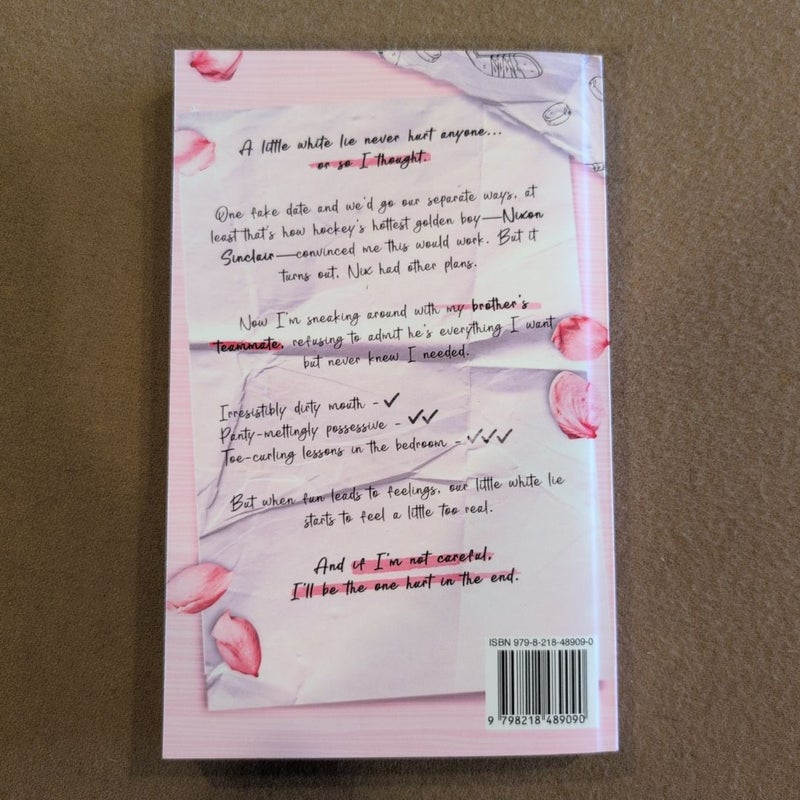 A little white lie never hurt anyone...
or so I thought.
One fake date and we'd go our separate ways, at
least that's how hockey's hottest golden boy—Nixon
Sinclair—convinced me this would work. But it
turns out, Nix had other plans.
Now I'm sneaking around with my brother's
teammate, refusing to admit he's everything I want
but never knew I needed.
Irresistibly dirty mouth - ✓
Panty-meltingly possessive - ✓✓
Toe-curling lessons in the bedroom - ✓✓✓
But when fun leads to feelings, our little white lie
starts to feel a little too real.
And if I'm not careful,
I'll be the one hurt in the end.
ISBN 979-8-218-48909-0
9 798218 489090